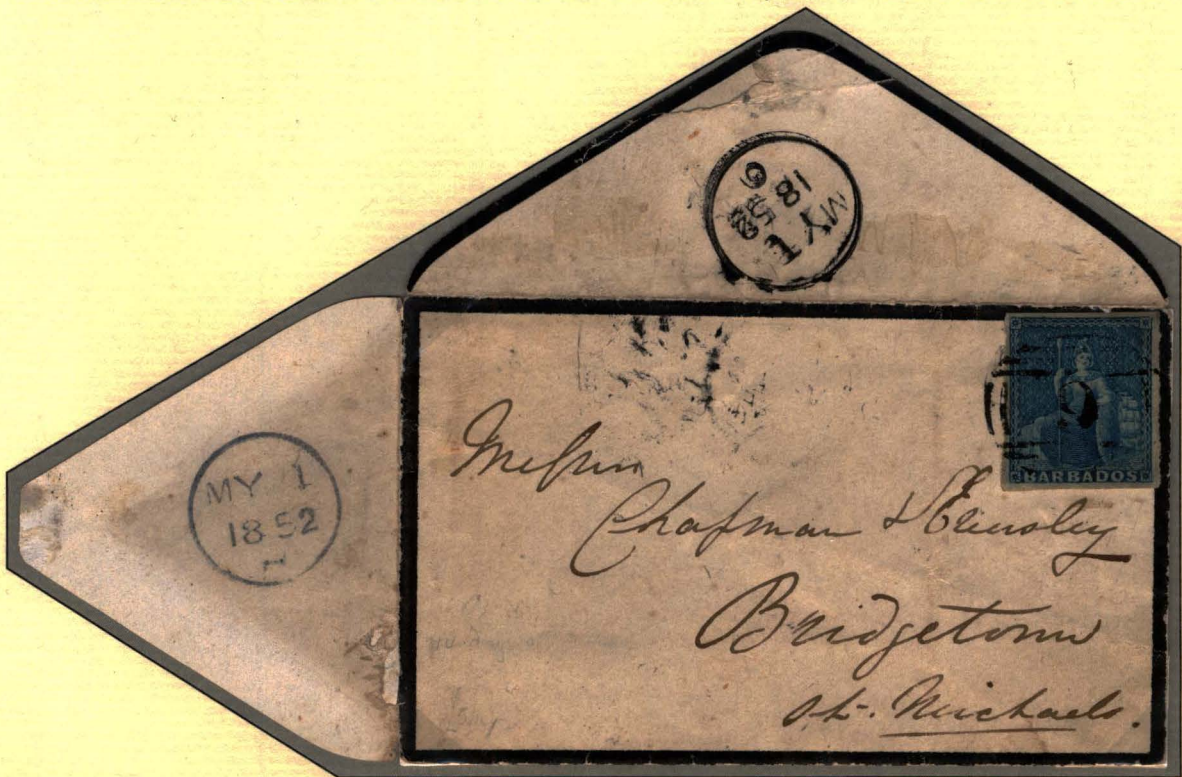 MY 1
1852
MY 1
1852
9
BARBADOS
Messrs
Chapman &
Bridgetown
St. Michaels.